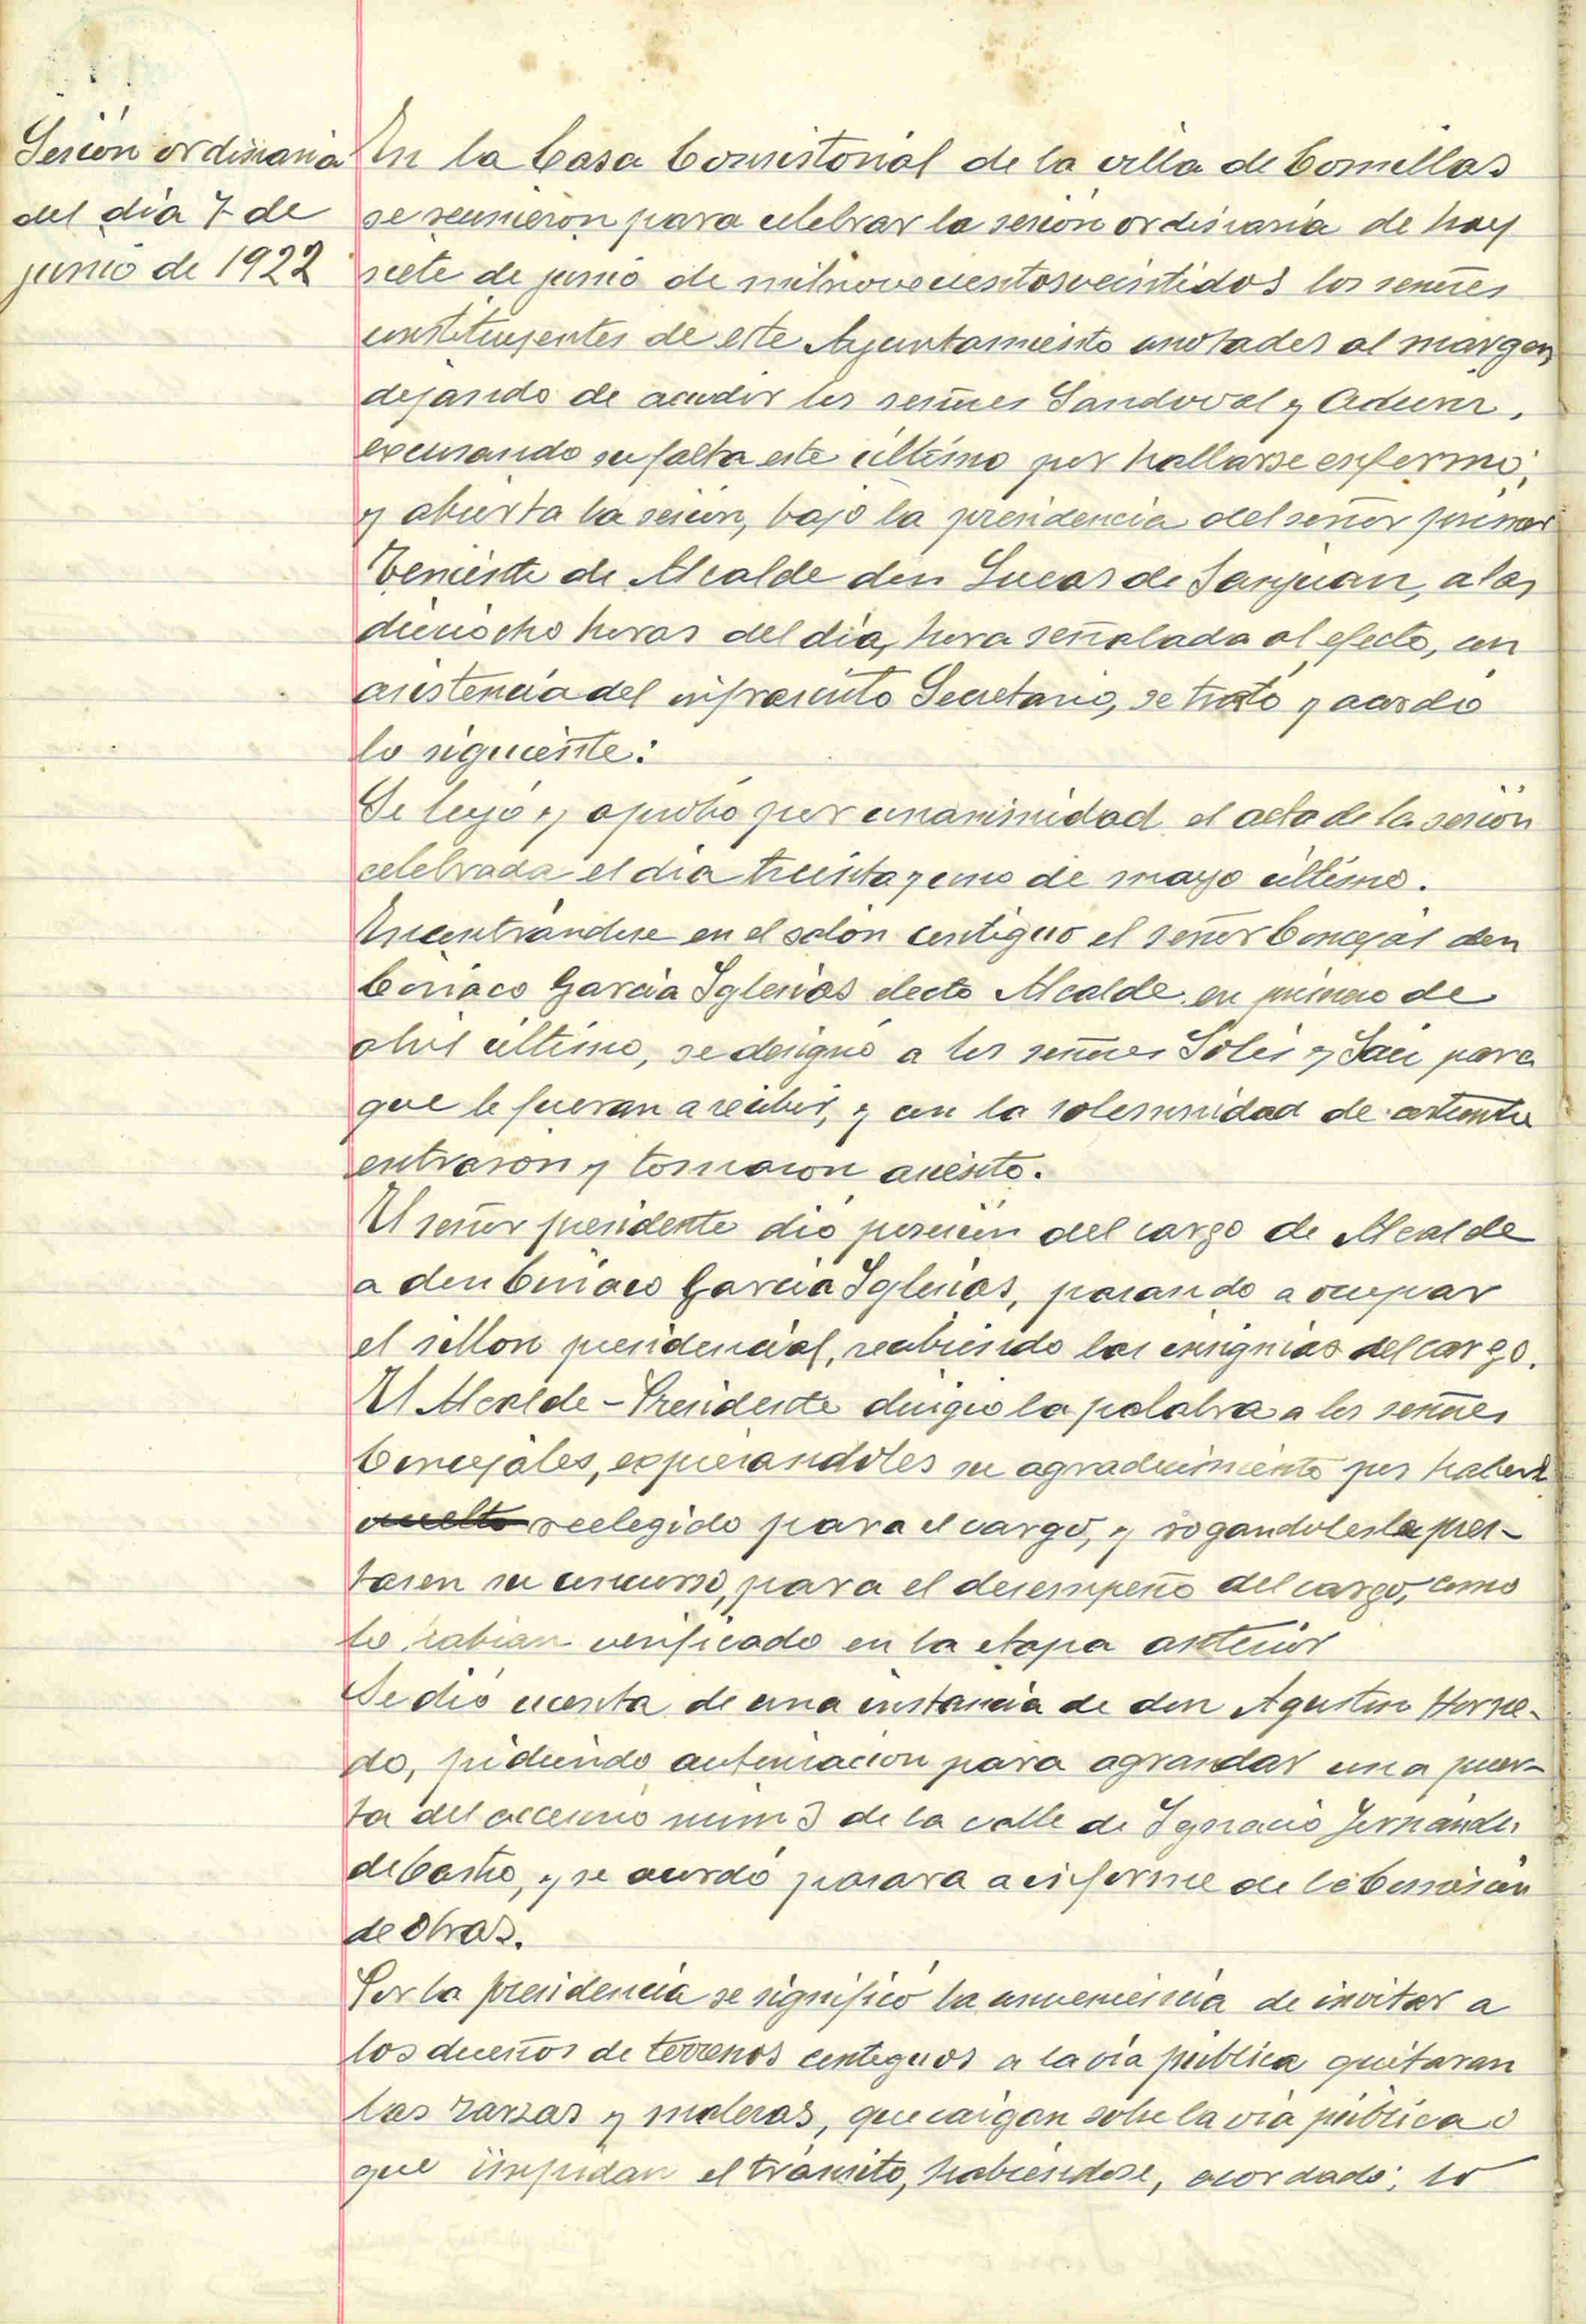 Sesión ordinaria
del día 7 de
junio de 1922
En la Casa Consistorial de la villa de Comillas
se reunieron para celebrar la sesión ordinaria de hoy
siete de junio de milnovecientosveintidos los señores
constituyentes de este Ayuntamiento anotados al margen,
dejando de acudir los señores Sandoval y
excusando su falta este último por hallarse enfermo;
y abierta la sesión, bajo la presidencia del señor primer
Teniente de Alcalde don Lucas de Sanjuan, a las
dieciocho horas del día, hora señalada al efecto, con
asistencia del infrascrito Secretario, se trató y acordó
lo siguiente:
Se leyó y aprobó por unanimidad el acta de la sesión
celebrada el día treinta y uno de mayo último.
Encontrándose en el salón contiguo el señor Concejal don
Ciriaco García Iglesias electo Alcalde en primero de
abril último, se designó a los señores Solís y para
que le fueran a recibir, y con la solemnidad de costumbre
entraron y tomaron asiento.
El señor presidente dió posesión del cargo de Alcalde
a don Ciriaco García Iglesias, pasando a ocupar
el sillon presidencial, recibiendo las insignias del cargo.
El Alcalde-Presidente dirigió la palabra a los señores
Concejales, expresandoles su agradecimiento por haberle
vuelto reelegido para el cargo, y rogandoles le pres-
tasen su concurso, para el desempeño del cargo, como
lo habian verificado en la etapa anterior
Se dió cuenta de una instancia de don Agustin Horne-
do, pidiendo autorizacion para agrandar una puer-
ta del accesorio núm 3 de la calle de Ignacio Fernández
de Castro, y se acordó pasara a informe de la Comisión
de Obras.
Por la presidencia se significó la conveniencia de invitar a
los dueños de terrenos contiguos a la vía pública quitaran
las zarzas y malezas, que caigan sobre la vía pública o
que impidan el tránsito, habiéndose, acordado; lo